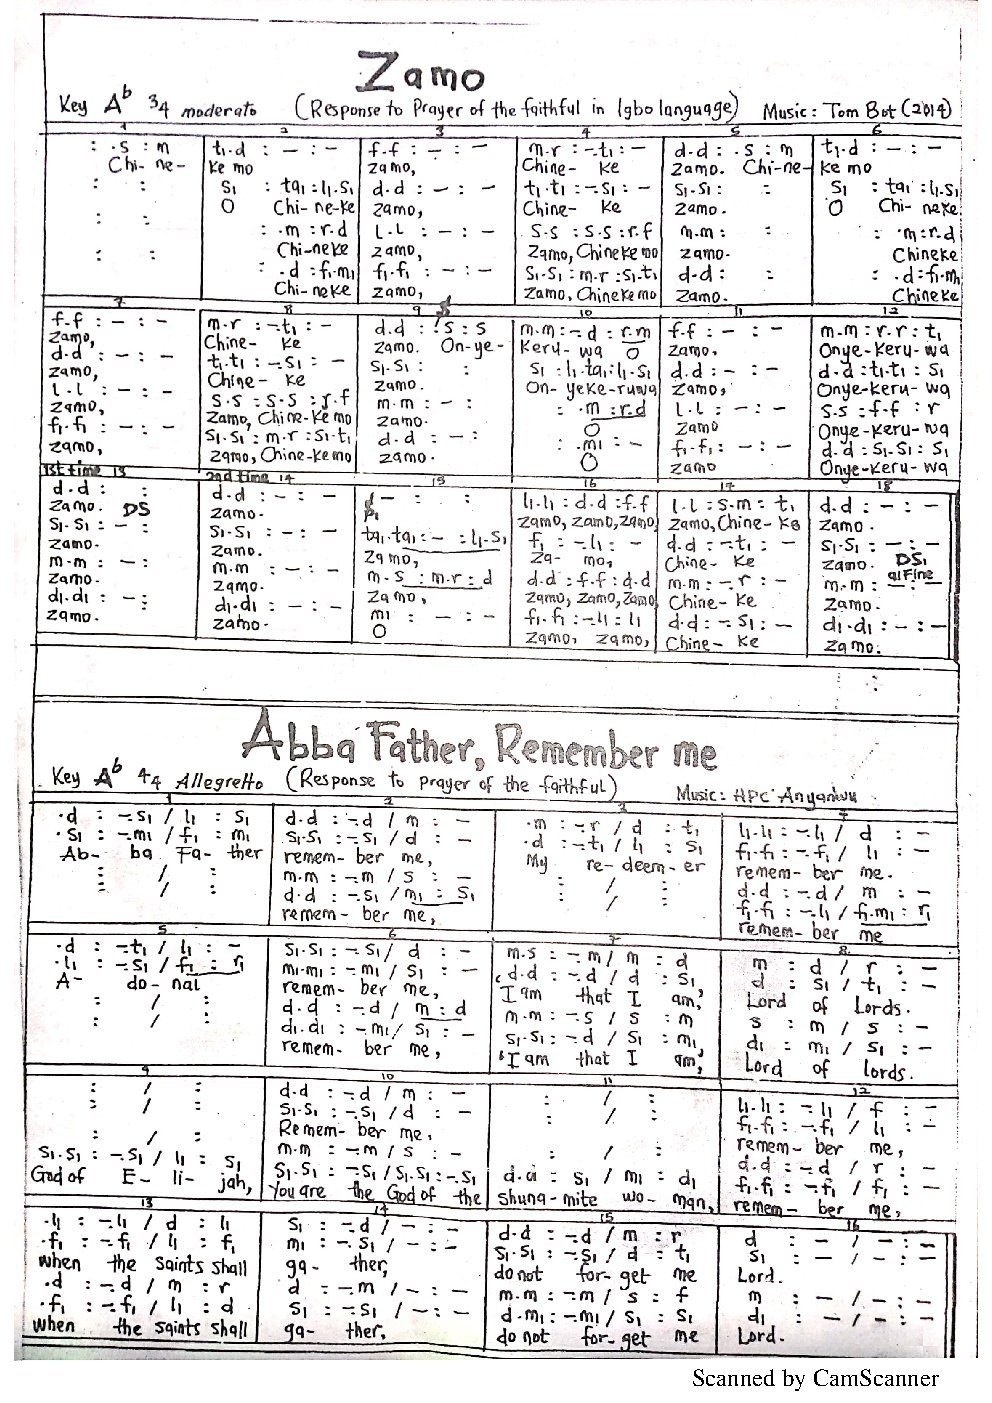 Zamo
Key Ab 3/4 moderato (Response to Prayer of the faithful in Igbo language) Music: Tom Bot (2014)
1 2 3 4 5 6
: .s : m t₁.d : – : – f.f : – : – m.r : –.t₁ : – d.d : .s : m t₁.d : – : –
Chi- ne- ke mo zamo, Chine- ke zamo. Chi-ne- ke mo
: : s₁ : ta₁ : l₁.s₁ d.d : – : – t₁.t₁ : –.s₁ : – s₁.s₁ : : s₁ : ta₁ : l₁.s₁
O Chi-ne-ke zamo, Chine- ke zamo. O Chi- neke
: : : .m : r.d l.l : – : – s.s : s.s : r.f m.m : : : .m : r.d
Chi-neke zamo, Zamo, Chineke mo zamo. Chineke
: : : .d : f₁.m₁ f₁.f₁ : – : – s₁.s₁ : m.r : s₁.t₁ d.d : : : .d : f₁.m₁
Chi-neke zamo, Zamo, Chineke mo Zamo. Chineke
7 8 9 10 11 12
f.f : – : – m.r : –.t₁ : – d.d : .s : s m.m : –.d : r.m f.f : – : – m.m : r.r : t₁
zamo, Chine- ke zamo. On-ye- Keru- wa O zamo, Onye-keru-wa
d.d : – : – t₁.t₁ : –.s₁ : – s₁.s₁ : : s₁ : l₁.ta₁ : l₁.s₁ d.d : – : – d.d : t₁.t₁ : s₁
zamo, Chine- ke zamo. On- yeke-ruwa zamo, Onye-keru- wa
l.l : – : – s.s : s.s : r.f m.m : – : : .m : r.d l.l : – : – s.s : f.f : r
zamo, Zamo, Chine-ke mo zamo. O zamo Onye-keru- wa
f₁.f₁ : – : – s₁.s₁ : m.r : s₁.t₁ d.d : – : : .m₁ : – f₁.f₁ : – : – d.d : s₁.s₁ : s₁
zamo, zamo, Chine-ke mo zamo. O zamo Onye-keru-wa
1st time 13 2nd time 14 15 16 17 18
d.d : : d.d : – : – – : : l₁.l₁ : d.d : f.f l.l : s.m : t₁ d.d : – : –
zamo. DS zamo. zamo, zamo, zamo, zamo, Chine- ke zamo.
s₁.s₁ : – : s₁.s₁ : – : – ta₁.ta₁ : – : l₁.s₁ f₁ : –.l₁ : – d.d : –.t₁ : – s₁.s₁ : – : –
zamo. zamo. zamo, za- mo, Chine- ke zamo. DS₁
m.m : – : m.m : – : – m.s : m.r : d d.d : f.f : d.d m.m : –.r : – m.m : – : – al Fine
zamo. zamo. zamo, zamo, zamo, zamo Chine- ke zamo.
d₁.d₁ : – : d₁.d₁ : – : – m₁ : – : – f₁.f₁ : –.l₁ : l₁ d.d : –.s₁ : – d₁.d₁ : – : –
zamo. zamo. O zamo, zamo, Chine- ke zamo.
Abba Father, Remember me
Key Ab 4/4 Allegretto (Response to prayer of the faithful) Music: HPC Anyanwu
1 2 3
.d : –.s₁ / l₁ : s₁ d.d : –.d / m : – .m : –.r / d : t₁ l₁.l₁ : –.l₁ / d : –
.s₁ : –.m₁ / f₁ : m₁ s₁.s₁ : –.s₁ / d : – .d : –.t₁ / l₁ : s₁ f₁.f₁ : –.f₁ / l₁ : –
Ab- ba Fa- ther remem- ber me, My re- deem- er remem- ber me.
: / : m.m : –.m / s : – : / : d.d : –.d / m : –
: / : d.d : –.s₁ / m₁ : s₁ : / : f₁.f₁ : –.l₁ / f₁.m₁ : r₁
remem- ber me, remem- ber me
5 6 7 8
.d : –.t₁ / l₁ : – s₁.s₁ : –.s₁ / d : – m.s : –.m / m : d m : d / r : –
.l₁ : –.s₁ / f₁ : r₁ m₁.m₁ : –.m₁ / s₁ : – d.d : –.d / d : s₁ d : s₁ / t₁ : –
A- do- nai remem- ber me, I am that I am, Lord of Lords.
: / : d.d : –.d / m : d m.m : –.s / s : m s : m / s : –
: / : d₁.d₁ : –.m₁ / s₁ : – s₁.s₁ : –.d / s₁ : m₁ d₁ : m₁ / s₁ : –
remem- ber me, I am that I am, Lord of lords.
9 10 11 12
: / : d.d : –.d / m : – : / : l₁.l₁ : –.l₁ / f : –
: / : s₁.s₁ : –.s₁ / d : – : / : f₁.f₁ : –.f₁ / l₁ : –
Remem- ber me, remem- ber me,
: / : m.m : –.m / s : – : / : d.d : –.d / r : –
s₁.s₁ : –.s₁ / l₁ : s₁ s₁.s₁ : –.s₁ / s₁.s₁ : –.s₁ d.d : s₁ / m₁ : d₁ f₁.f₁ : –.f₁ / f₁ : –
God of E- li- jah, you are the God of the shuna-mite wo- man, remem- ber me,
13 14 15 16
.l₁ : –.l₁ / d : l₁ s₁ : –.d / – : – d.d : –.d / m : r d : – / – : –
.f₁ : –.f₁ / l₁ : f₁ m₁ : –.s₁ / – : – s₁.s₁ : –.s₁ / d : t₁ s₁ : – / – : –
when the saints shall ga- ther, do not for- get me Lord.
.d : –.d / m : r d : –.m / – : – m.m : –.m / s : f m : – / – : –
.f₁ : –.f₁ / l₁ : d s₁ : –.s₁ / – : – d.m₁ : –.m₁ / s₁ : s₁ d₁ : – / – : –
when the saints shall ga- ther, do not for- get me Lord.
Scanned by CamScanner